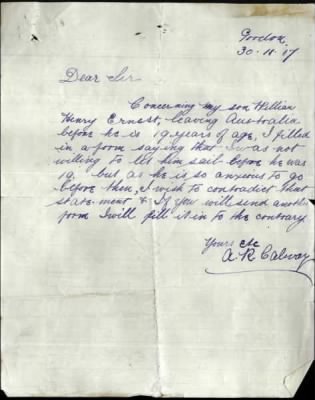 Gordon
30-11-17
Dear Sir
Concerning my son William
Henry Ernest, leaving Australia
before he is 19 years of age, I filled
in a form saying that I was not
willing to let him sail before he was
19. but as he is so anxious to go
before then, I wish to contradict that
statement & If you will send another
form I will fill it in to the contrary
Yours etc
A R Calway